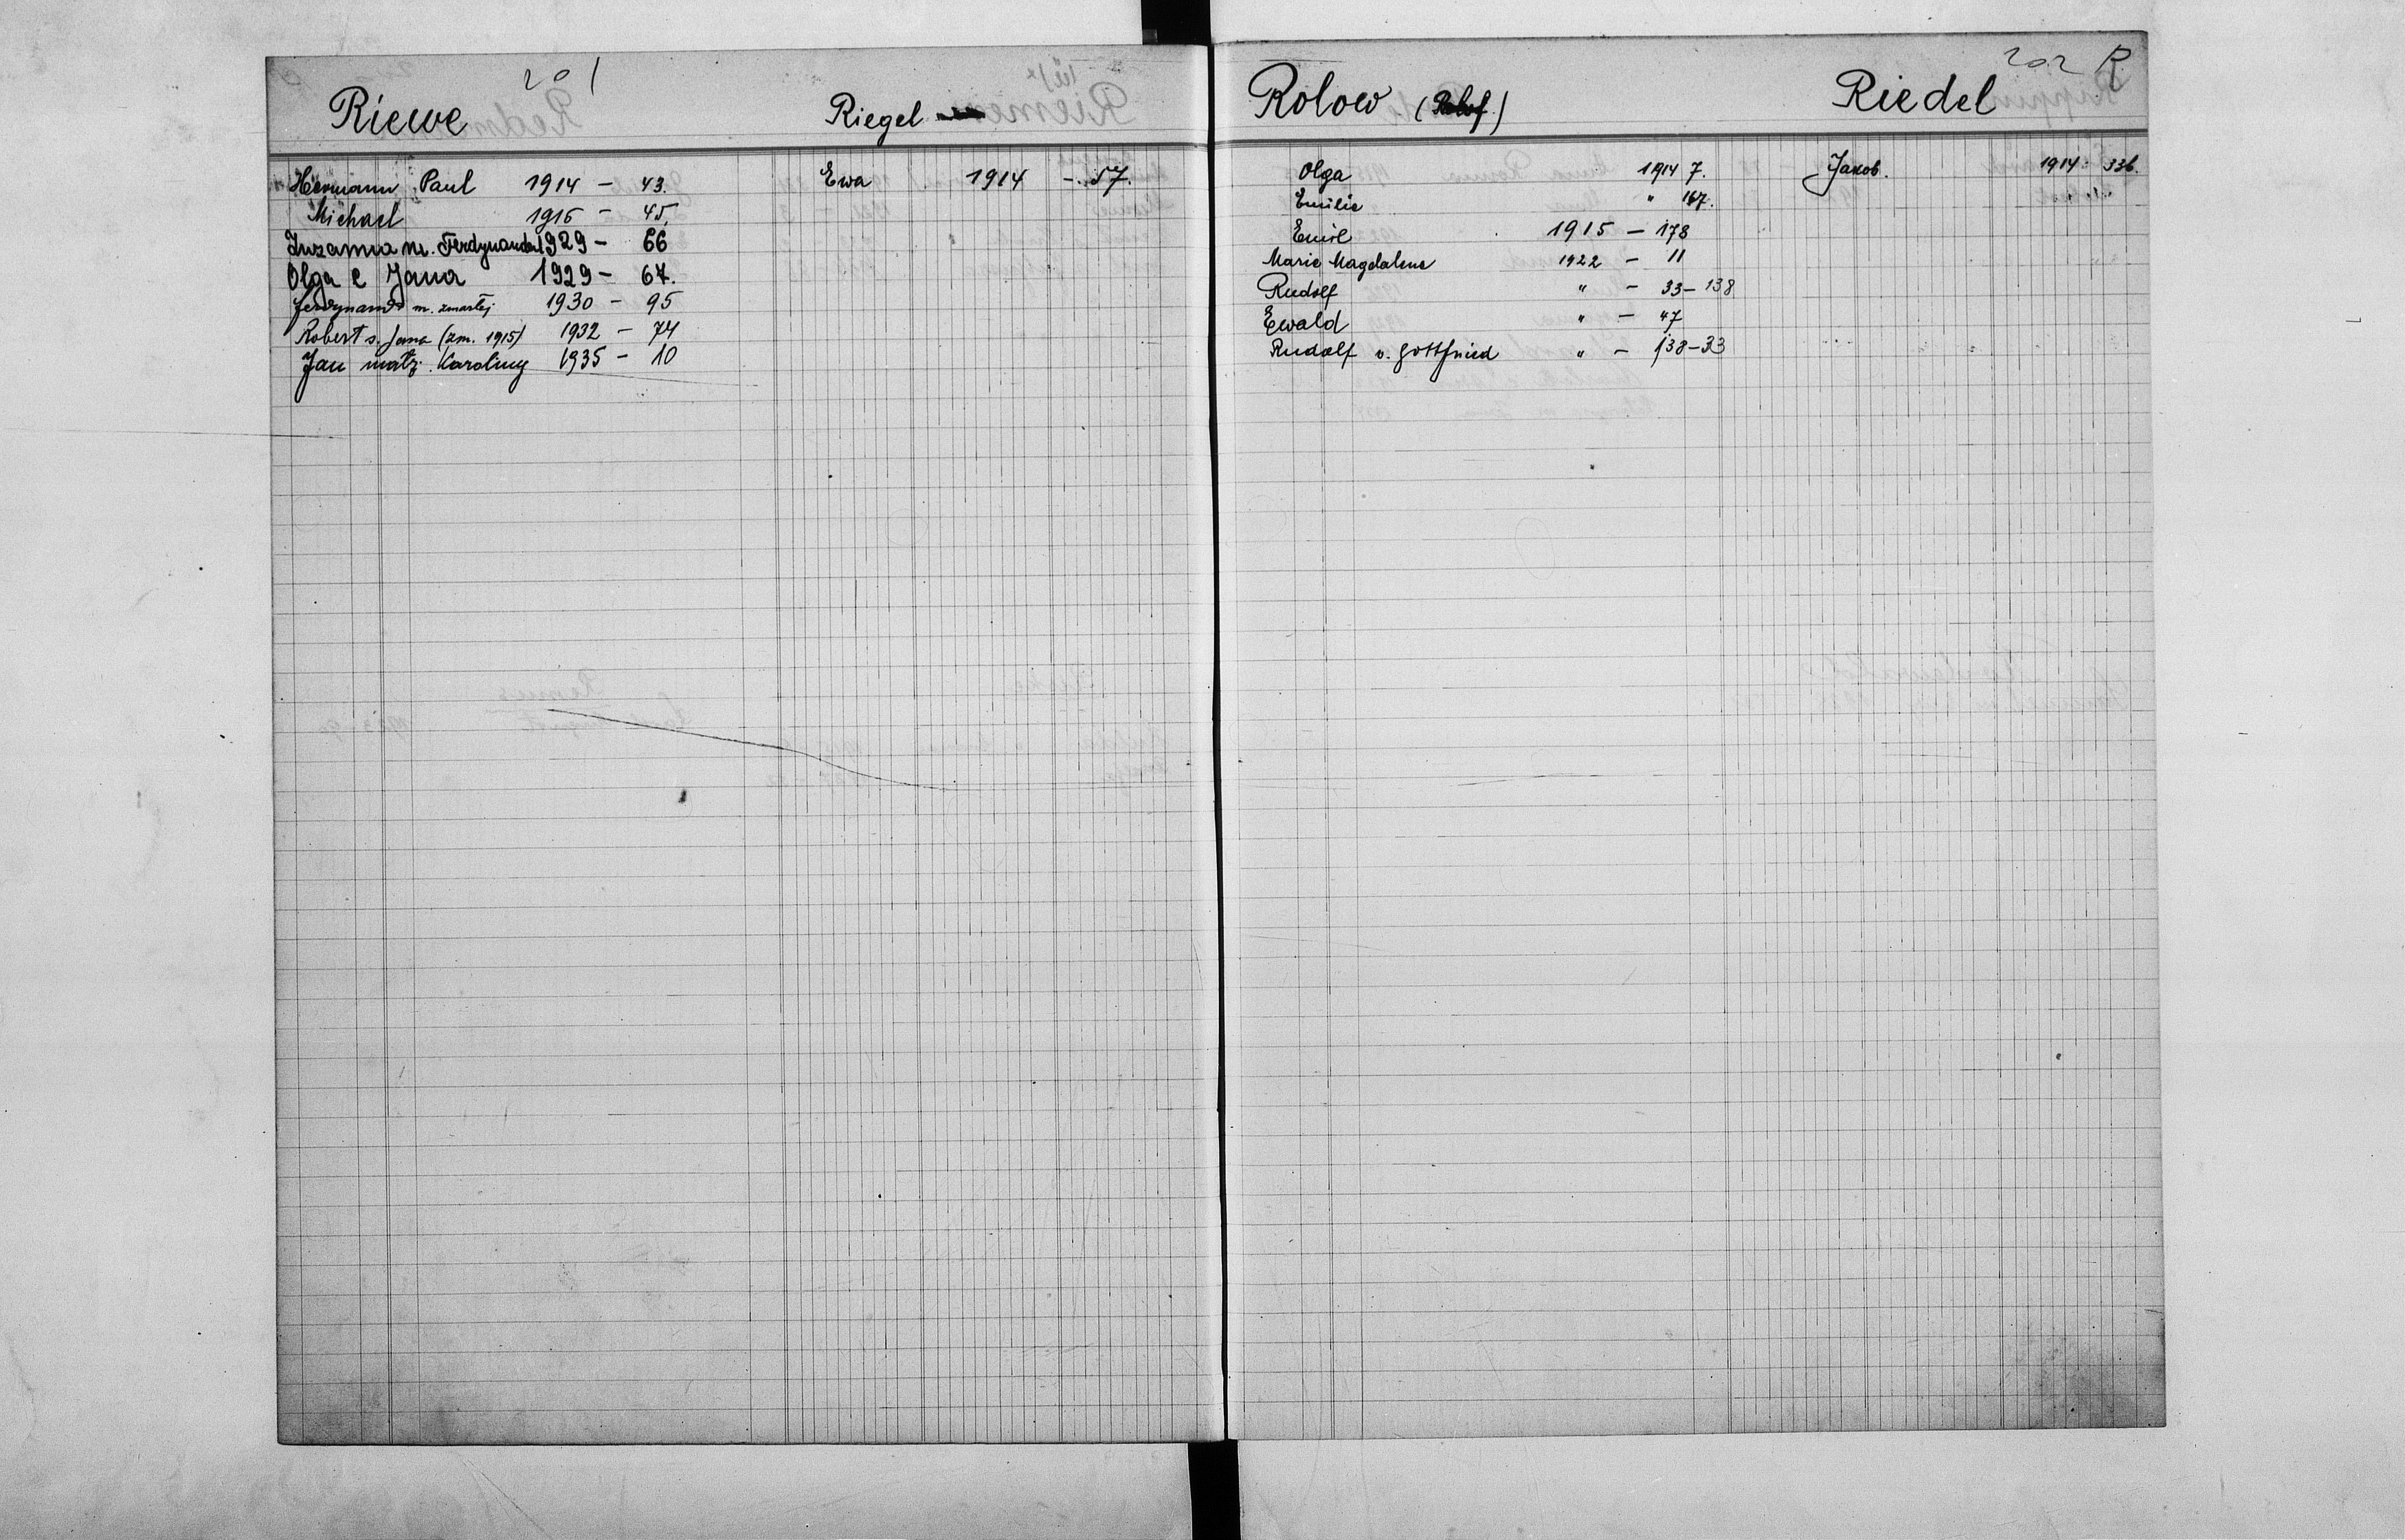 201
Riewe
Hermann Paul 1914 - 43.
Michael 1915 - 45.
Zuzanna m. Ferdynanda 1929 - 66
Olga c Jana 1929 - 67.
Ferdynand m. zmarłej 1930 - 95
Robert s. Jana (zm. 1915) 1932 - 74
Jan małż. Karoliny 1935 - 10
Riegel
Ewa 1914 - 57.
202 R
Rolow (Rolof)
Olga 1914 7.
Emilie " 167.
Emil 1915 - 178
Marie Magdalene 1922 - 11
Rudolf " - 33-138
Ewald " - 47
Rudolf v. Gottfried " - 138-33
Riedel
Jakob. 1914 336.